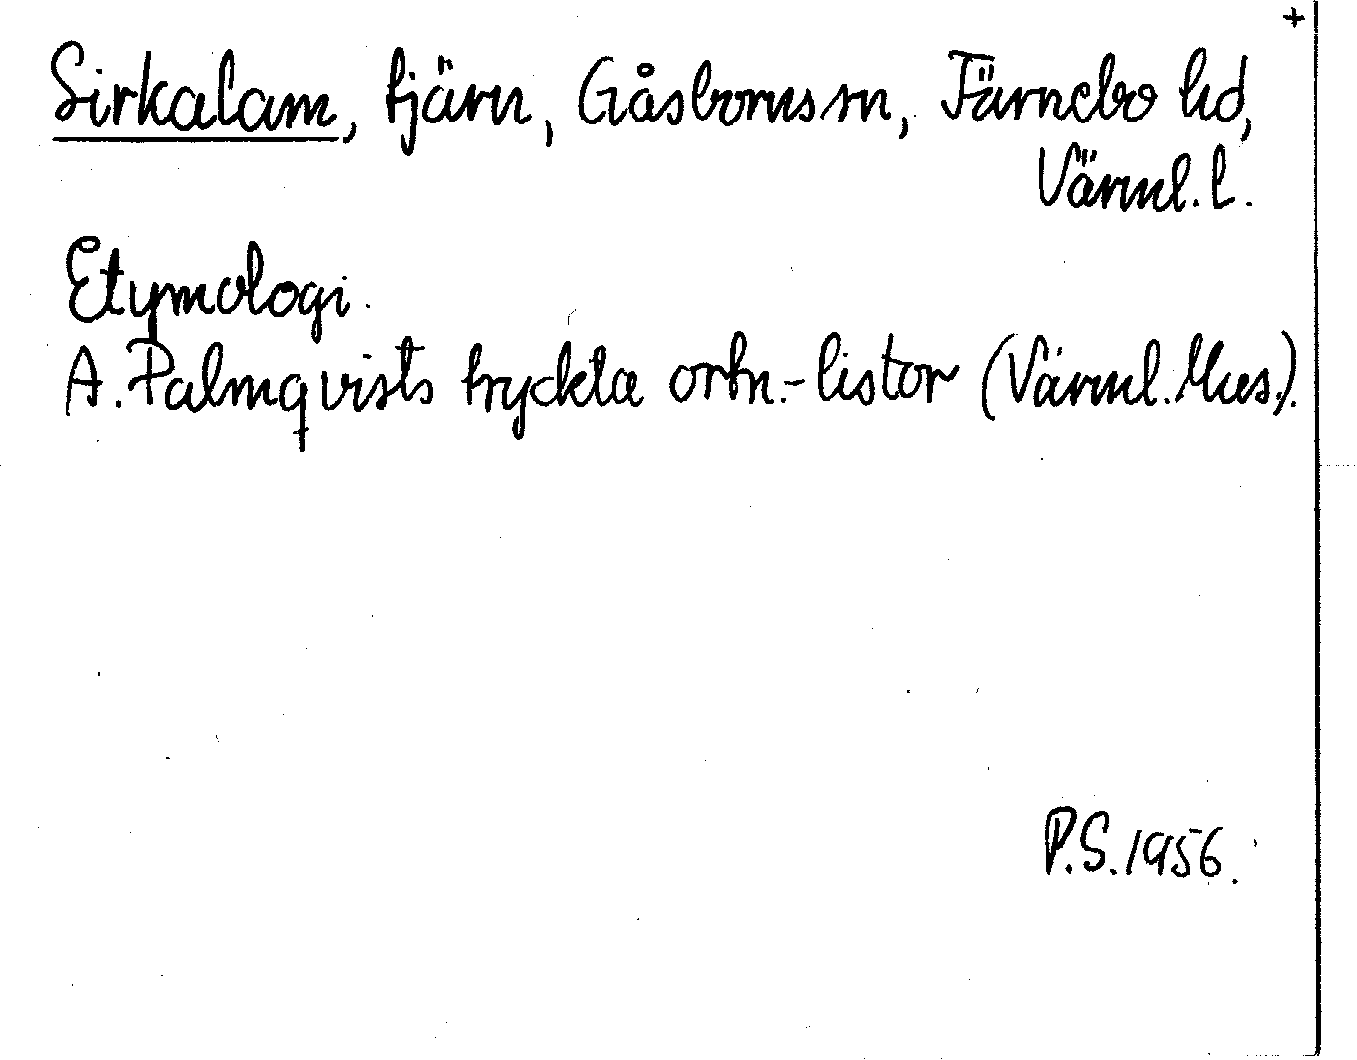 +
Sirkalam, tjärn, Gåsborns sn, Färnebo hd,
Värml. l.
Etymologi.
A. Palmqvists tryckta ortn.-listor (Värml. Mus.).
P.S. 1956.